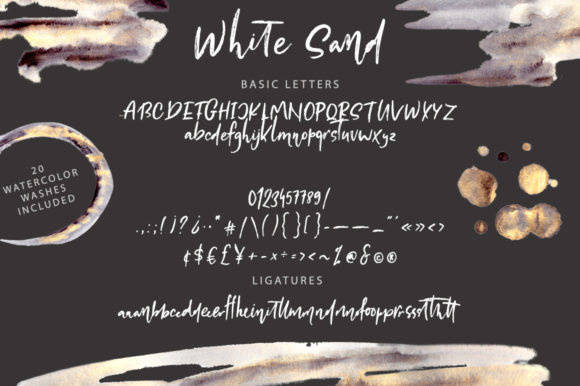 White Sand
BASIC LETTERS
ABCDEFGHIJKLMNOPQRSTUVWXYZ
abcdefghijklmnopqrstuvwxyz
20
WATERCOLOR
WASHES
INCLUDED
0123457789/
.,:;!¡?¿··"#/\(){}[]-–—_"'«»<>
¢$€£¥+-×÷=><~%@&©®
LIGATURES